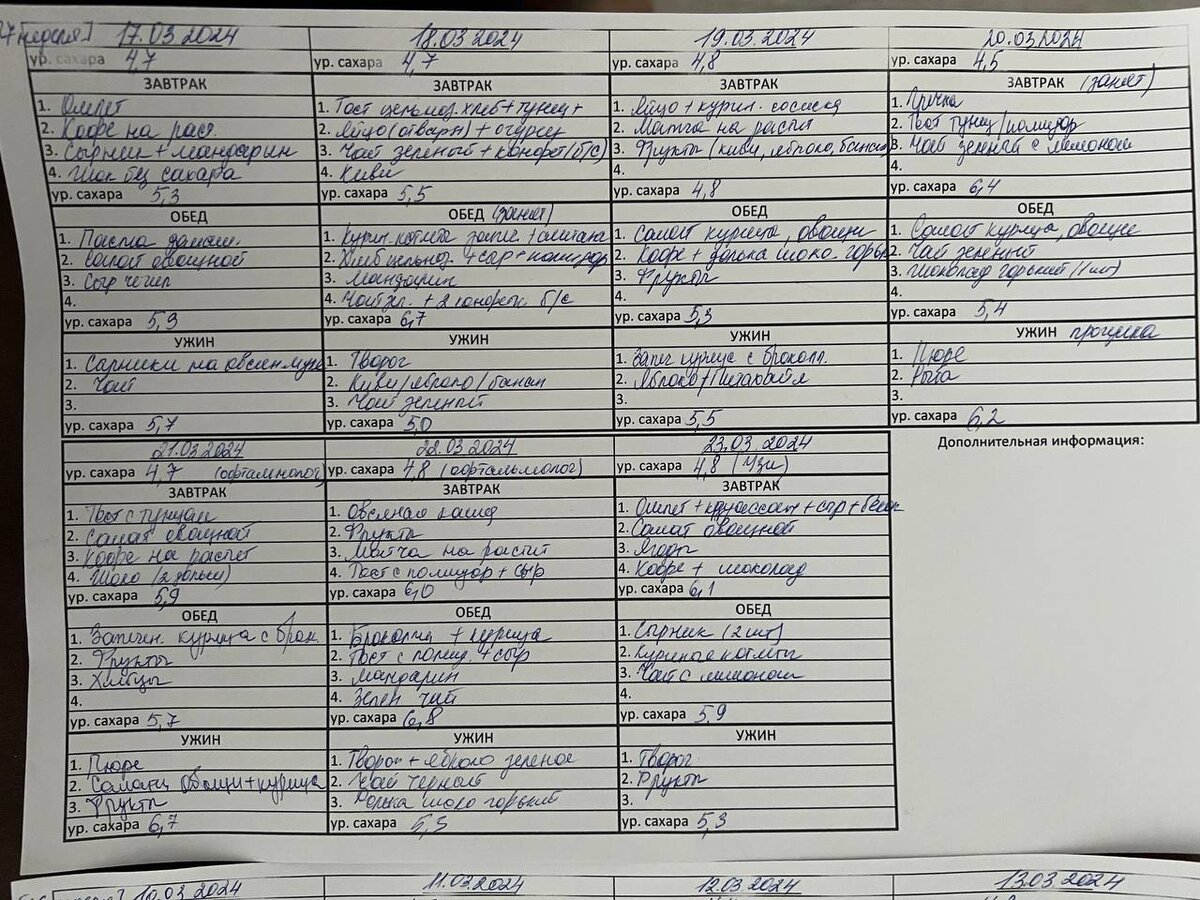 37 неделя] 17.03 2024
ур. сахара 4,7
ЗАВТРАК
1. Омлет
2. Кофе на раст.
3. Сырник + мандарин
4. Шок без сахара
ур. сахара 5,3
ОБЕД
1. Паста домаш.
2. Салат овощной
3. Сыр чечил
4.
ур. сахара 5,9
УЖИН
1. Сырники на овсян.муке
2. Чай
3.
ур. сахара 5,7
18.03 2024
ур. сахара 4,7
ЗАВТРАК
1. Тост цельноз. хлеб + тунец +
2. Яйцо (отварн) + огурец
3. Чай зеленый + конфет (б/с)
4. Киви
ур. сахара 5,5
ОБЕД (занят)
1. Курин. котлета запеч. + сметана
2. Хлеб цельноз. + сыр + помидор
3. Мандарин
4. Чай зел. + 2 конфеты б/с
ур. сахара 6,7
УЖИН
1. Творог
2. Киви / яблоко / банан
3. Чай зеленый
ур. сахара 5,0
19.03 2024
ур. сахара 4,8
ЗАВТРАК
1. Яйцо + курин. сосиска
2. Матча на растит
3. Фрукты (киви, яблоко, банан)
ур. сахара 4,8
ОБЕД
1. Салат курица, овощи
2. Кофе + долька шоко. горьк
3. Фрукты
4.
ур. сахара 5,3
УЖИН
1. Запеч курица с броколл.
2. Яблоко / Питахайя
3.
ур. сахара 5,5
20.03.2024
ур. сахара 4,5
ЗАВТРАК (занят)
1. Гречка
2. Тост тунец / помидор
3. Чай зеленый с лимоном
4.
ур. сахара 6,4
ОБЕД
1. Салат курица, овощи
2. Чай зеленый
3. Шоколад горький (1 шт)
4.
ур. сахара 5,4
УЖИН прогулка
1. Пюре
2. Рыба
3.
ур. сахара 6,2
21.03 2024
ур. сахара 4,7 (офтальмолог)
ЗАВТРАК
1. Тост с тунцом
2. Салат овощной
3. Кофе на растит
4. Шоко (2 дольки)
ур. сахара 5,9
ОБЕД
1. Запечен. курица с брок.
2. Фрукты
3. Хлебцы
4.
ур. сахара 5,7
УЖИН
1. Пюре
2. Салат овощи + курица
3. Фрукты
ур. сахара 6,7
22.03 2024
ур. сахара 4,8 (офтальмолог)
ЗАВТРАК
1. Овсяная каша
2. Фрукты
3. Матча на растит
4. Тост с помидор + сыр
ур. сахара 6,0
ОБЕД
1. Брокколи + курица
2. Тост с помид. + сыр
3. Мандарин
4. Зелен чай
ур. сахара 6,8
УЖИН
1. Творог + яблоко зеленое
2. Чай черный
3. Долька шоко горький
ур. сахара 5,3
23.03 2024
ур. сахара 4,8 (Узи)
ЗАВТРАК
1. Омлет + круассан + сыр +
2. Салат овощной
3. Ягоды
4. Кофе + шоколад
ур. сахара 6,1
ОБЕД
1. Сырник (2 шт)
2. Куриные котлеты
3. Чай с лимоном
4.
ур. сахара 5,9
УЖИН
1. Творог
2. Фрукты
3.
ур. сахара 5,3
Дополнительная информация:
10.03 2024
11.03 2024
12.03 2024
13.03 2024